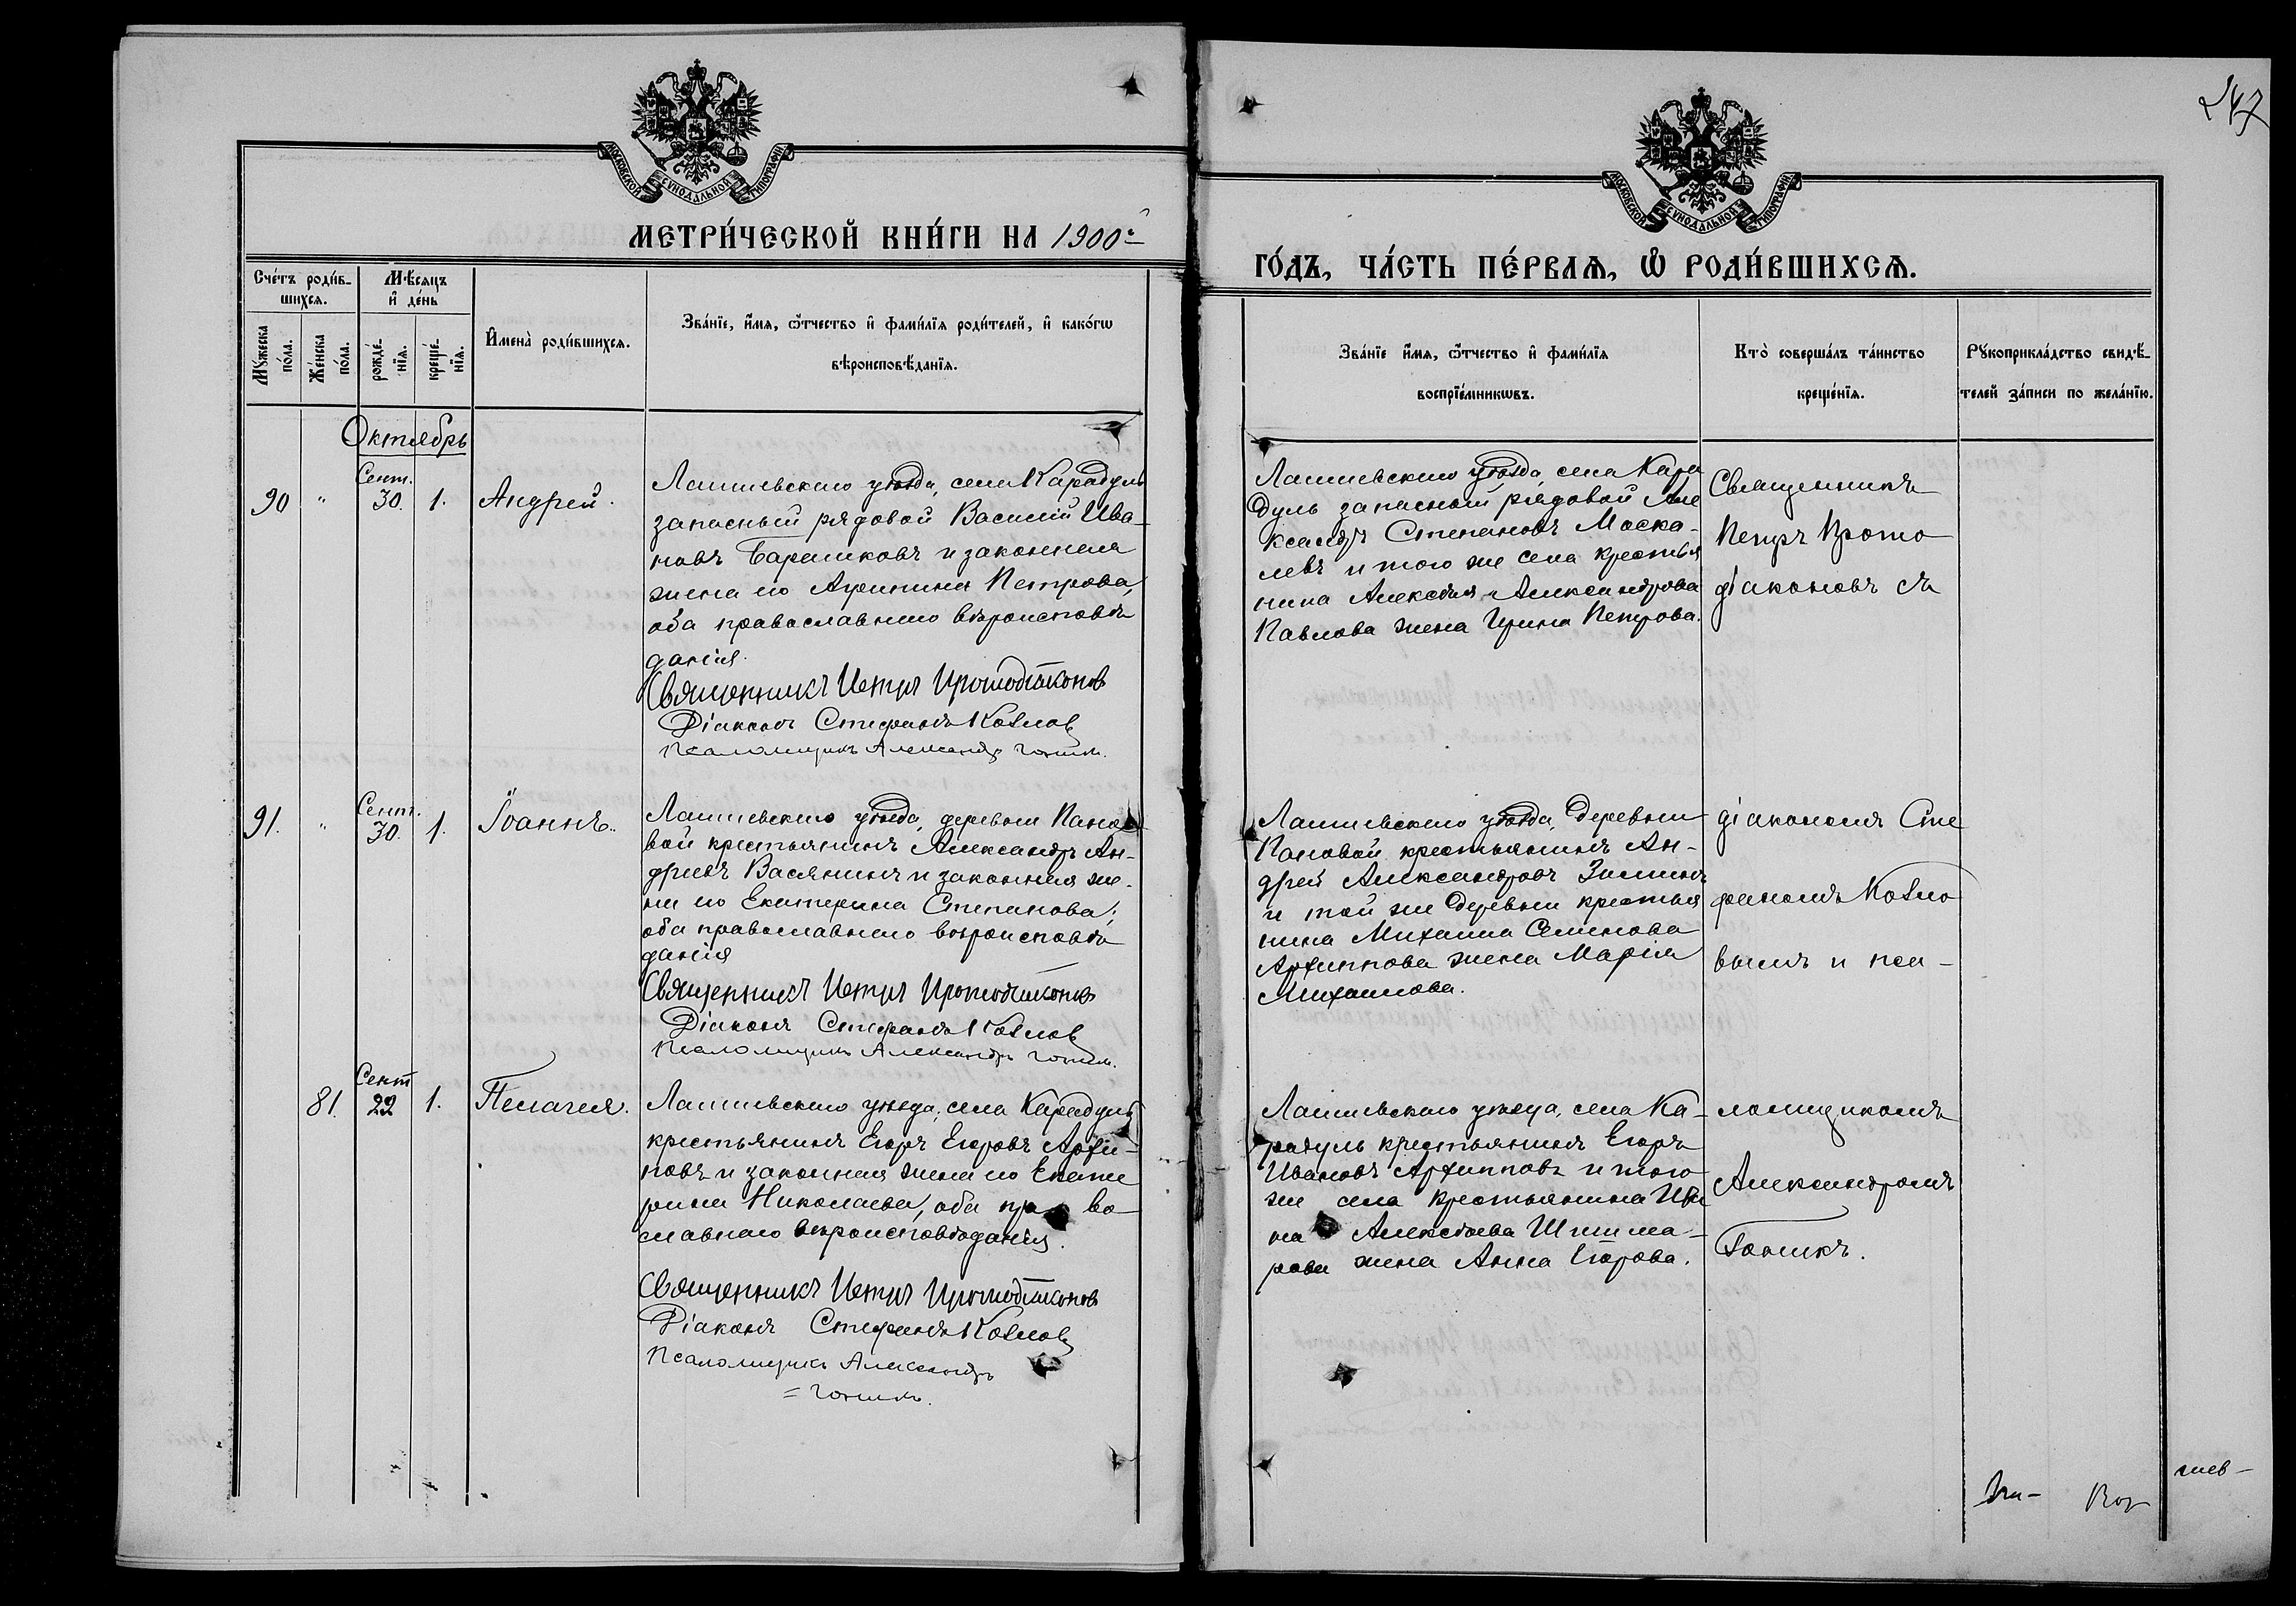 247
МОСКОВСКОЙ СѴНОДАЛЬНОЙ ТИПОГРАФІИ
МОСКОВСКОЙ СѴНОДАЛЬНОЙ ТИПОГРАФІИ
МЕТРИ́ЧЕСКОЙ КНИ́ГИ НА 1900й
ГО́ДЪ, ЧА́СТЬ ПЕ́РВАѦ, Ѽ РОДИ́ВШИХСѦ.
Сче́тъ роди́в-
шихсѧ.
Мѣ́сѧцъ
и҆ де́нь
Мꙋ́жеска по́ла.
Же́нска по́ла.
рожде́нїѧ.
креще́нїѧ.
И҆мена̀ роди́вшихсѧ.
Зва́нїе, и҆́мѧ, ѿтчество и҆ фами́лїѧ роди́телей, и҆ како́гѡ
вѣроисповѣ́данїѧ.
Зва́нїе и҆́мѧ, ѿтчество и҆ фами́лїѧ
воспрїе́мникѡвъ.
Кто̀ соверша́лъ та́инство
креще́нїѧ.
Рꙋкоприкла́дство свидѣ́-
телей за́писи по жела́нїю.
Октябрь
90 " Сент. 30. 1. Андрей.
Лаишевскаго уѣзда, села Карадуль
запасный рядовой Василій Ива-
новъ Барашковъ и законная
жена его Агрипина Петрова,
оба православнаго вѣроисповѣ
данія.
Священникъ Петръ Протодіаконов
Діаконъ Стефанъ Козлов
Псаломщикъ Александръ Гоникъ.
Лаишевскаго уѣзда, села Кара
дуль запасный рядовой Але
ксандръ Степановъ Моска-
левъ и того же села крестья
нина Алексѣя Александрова
Павлова жена Ирина Петрова.
Священникъ
Петръ Прото
діаконовъ съ
91. " Сент. 30. 1. Іоаннъ.
Лаишевскаго уѣзда, деревни Пано-
вой крестьянинъ Александръ Ан-
дреевъ Васянинъ и законная же-
на его Екатерина Степанова;
оба православнаго вѣроисповѣ
данія
Священникъ Петръ Протодіаконов
Діаконъ Стефанъ Козлов
Псаломщикъ Александръ Гоникъ.
Лаишевскаго уѣзда, деревни
Пановой крестьянинъ Ан-
дрей Александровъ Зиминъ
и той же деревни крестья
нина Михаила Семенова
Архиппова жена Марія
Михаилова.
діакономъ Сте
фаномъ Козло
вымъ и пса-
81. Сент 22 1. Пелагея.
Лаишевскаго уѣзда, села Карадуль
крестьянинъ Егоръ Егоровъ Архи-
повъ и законная жена его Екате
рина Николаева, оба пра во
славнаго вѣроисповѣданія.
Священникъ Петръ Протодіаконов
Діаконъ Стефанъ Козлов
Псаломщикъ Александръ
= Гоникъ.
Лаишевскаго уѣзда, села Ка-
радуль крестьянинъ Егоръ
Ивановъ Архипповъ и того
же села крестьянина Ива
на Алексѣева Шишма-
рова жена Анна Егорова.
ломщикомъ
Александромъ
Гоникъ.